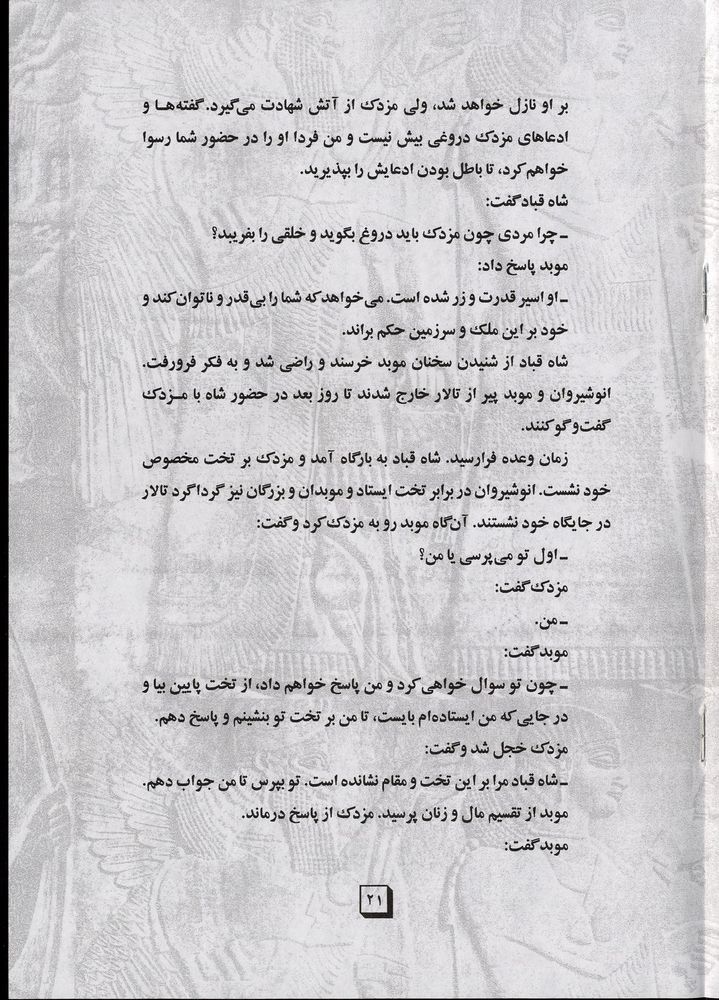 بر او نازل خواهد شد، ولی مزدک از آتش شهادت می‌گیرد. گفته‌هــا و
ادعاهای مزدک دروغی بیش نیست و من فردا او را در حضور شما رسوا
خواهم کرد، تا باطل بودن ادعایش را بپذیرید.
شاه قباد گفت:
ـ چرا مردی چون مزدک باید دروغ بگوید و خلقی را بفریبد؟
موبد پاسخ داد:
ـ او اسیر قدرت و زر شده است. می‌خواهد که شما را بی‌قدر و ناتوان کند و
خود بر این ملک و سرزمین حکم براند.
شاه قباد از شنیدن سخنان موبد خرسند و راضی شد و به فکر فرورفت.
انوشیروان و موبد پیر از تالار خارج شدند تا روز بعد در حضور شاه با مــزدک
گفت‌وگو کنند.
زمان وعده فرارسید. شاه قباد به بارگاه آمد و مزدک بر تخت مخصوص
خود نشست. انوشیروان در برابر تخت ایستاد و موبدان و بزرگان نیز گرداگرد تالار
در جایگاه خود نشستند. آن‌گاه موبد رو به مزدک کرد و گفت:
ـ اول تو می‌پرسی یا من؟
مزدک گفت:
ـ من.
موبد گفت:
ـ چون تو سوال خواهی کرد و من پاسخ خواهم داد، از تخت پایین بیا و
در جایی که من ایستاده‌ام بایست، تا من بر تخت تو بنشینم و پاسخ دهم.
مزدک خجل شد و گفت:
ـ شاه قباد مرا بر این تخت و مقام نشانده است. تو بپرس تا من جواب دهم.
موبد از تقسیم مال و زنان پرسید. مزدک از پاسخ درماند.
موبد گفت:
۲۱